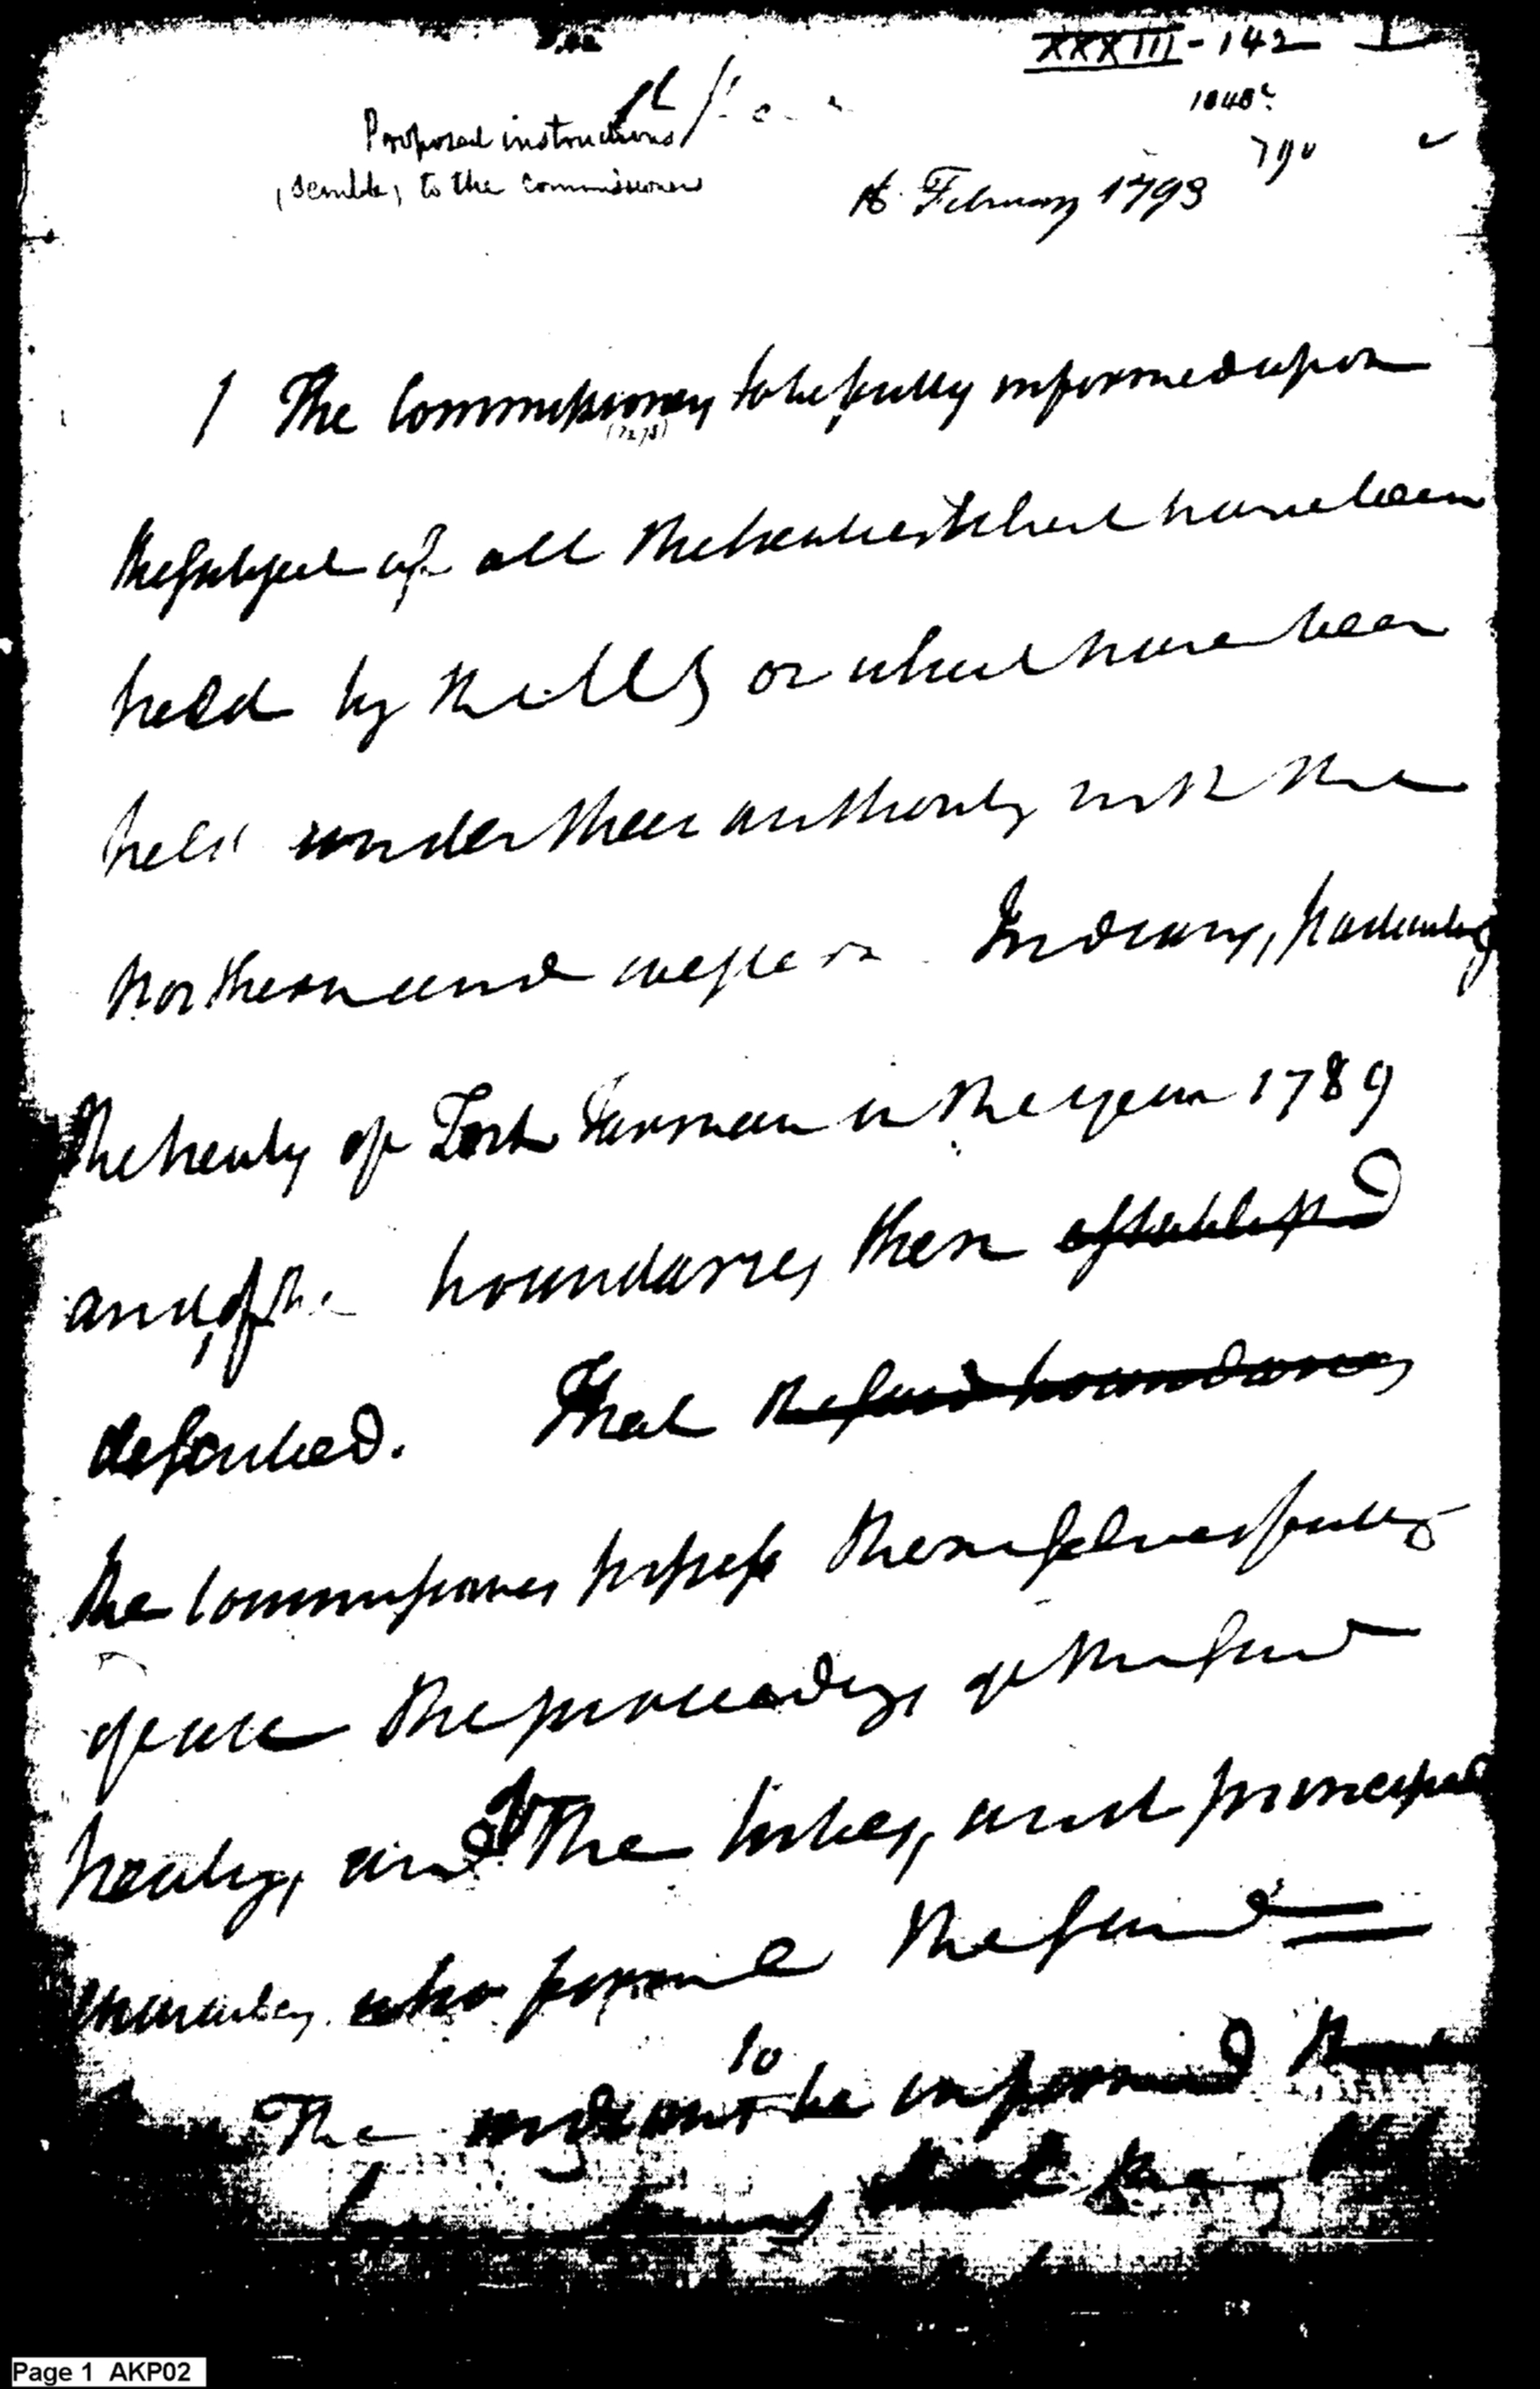 XXXIII-142
Proposed instructions
(semble) to the commissioners
February 1793
1 The Commissioners to be fully informed upon
the subject of all the treaties which have been
held by the US or which have been
held under their authority with the
northern and western Indians, particularly
the treaty of Fort Harmar in the year 1789
and of the boundaries then established
described. That the said boundaries
the Commissioners possess themselves fully
of all the proceedings of the said
treaty, and of the tribes, and principal
characters who formed the said
to
The indians be informed
Page 1 AKP02